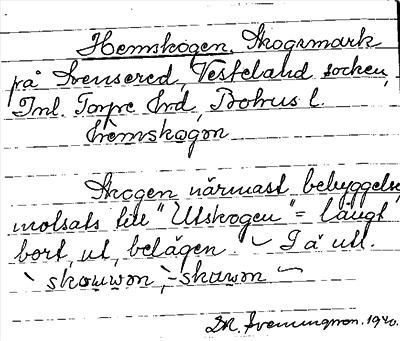 Hemskogen. Skogsmark
på Svensered, Västerland socken,
Inl. Torpe hrd, Bohus l.
hemskogon
Skogen närmast bebyggelse,
motsats till "Utskogen" = långt
bort, ut, belägen. I ä utt.
skouwon, -skuwon
M. Svenungsson. 1940.